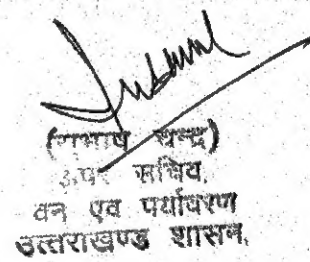 (सुभाष चन्द्र)
अपर सचिव,
वन एवं पर्यावरण
उत्तराखण्ड शासन,